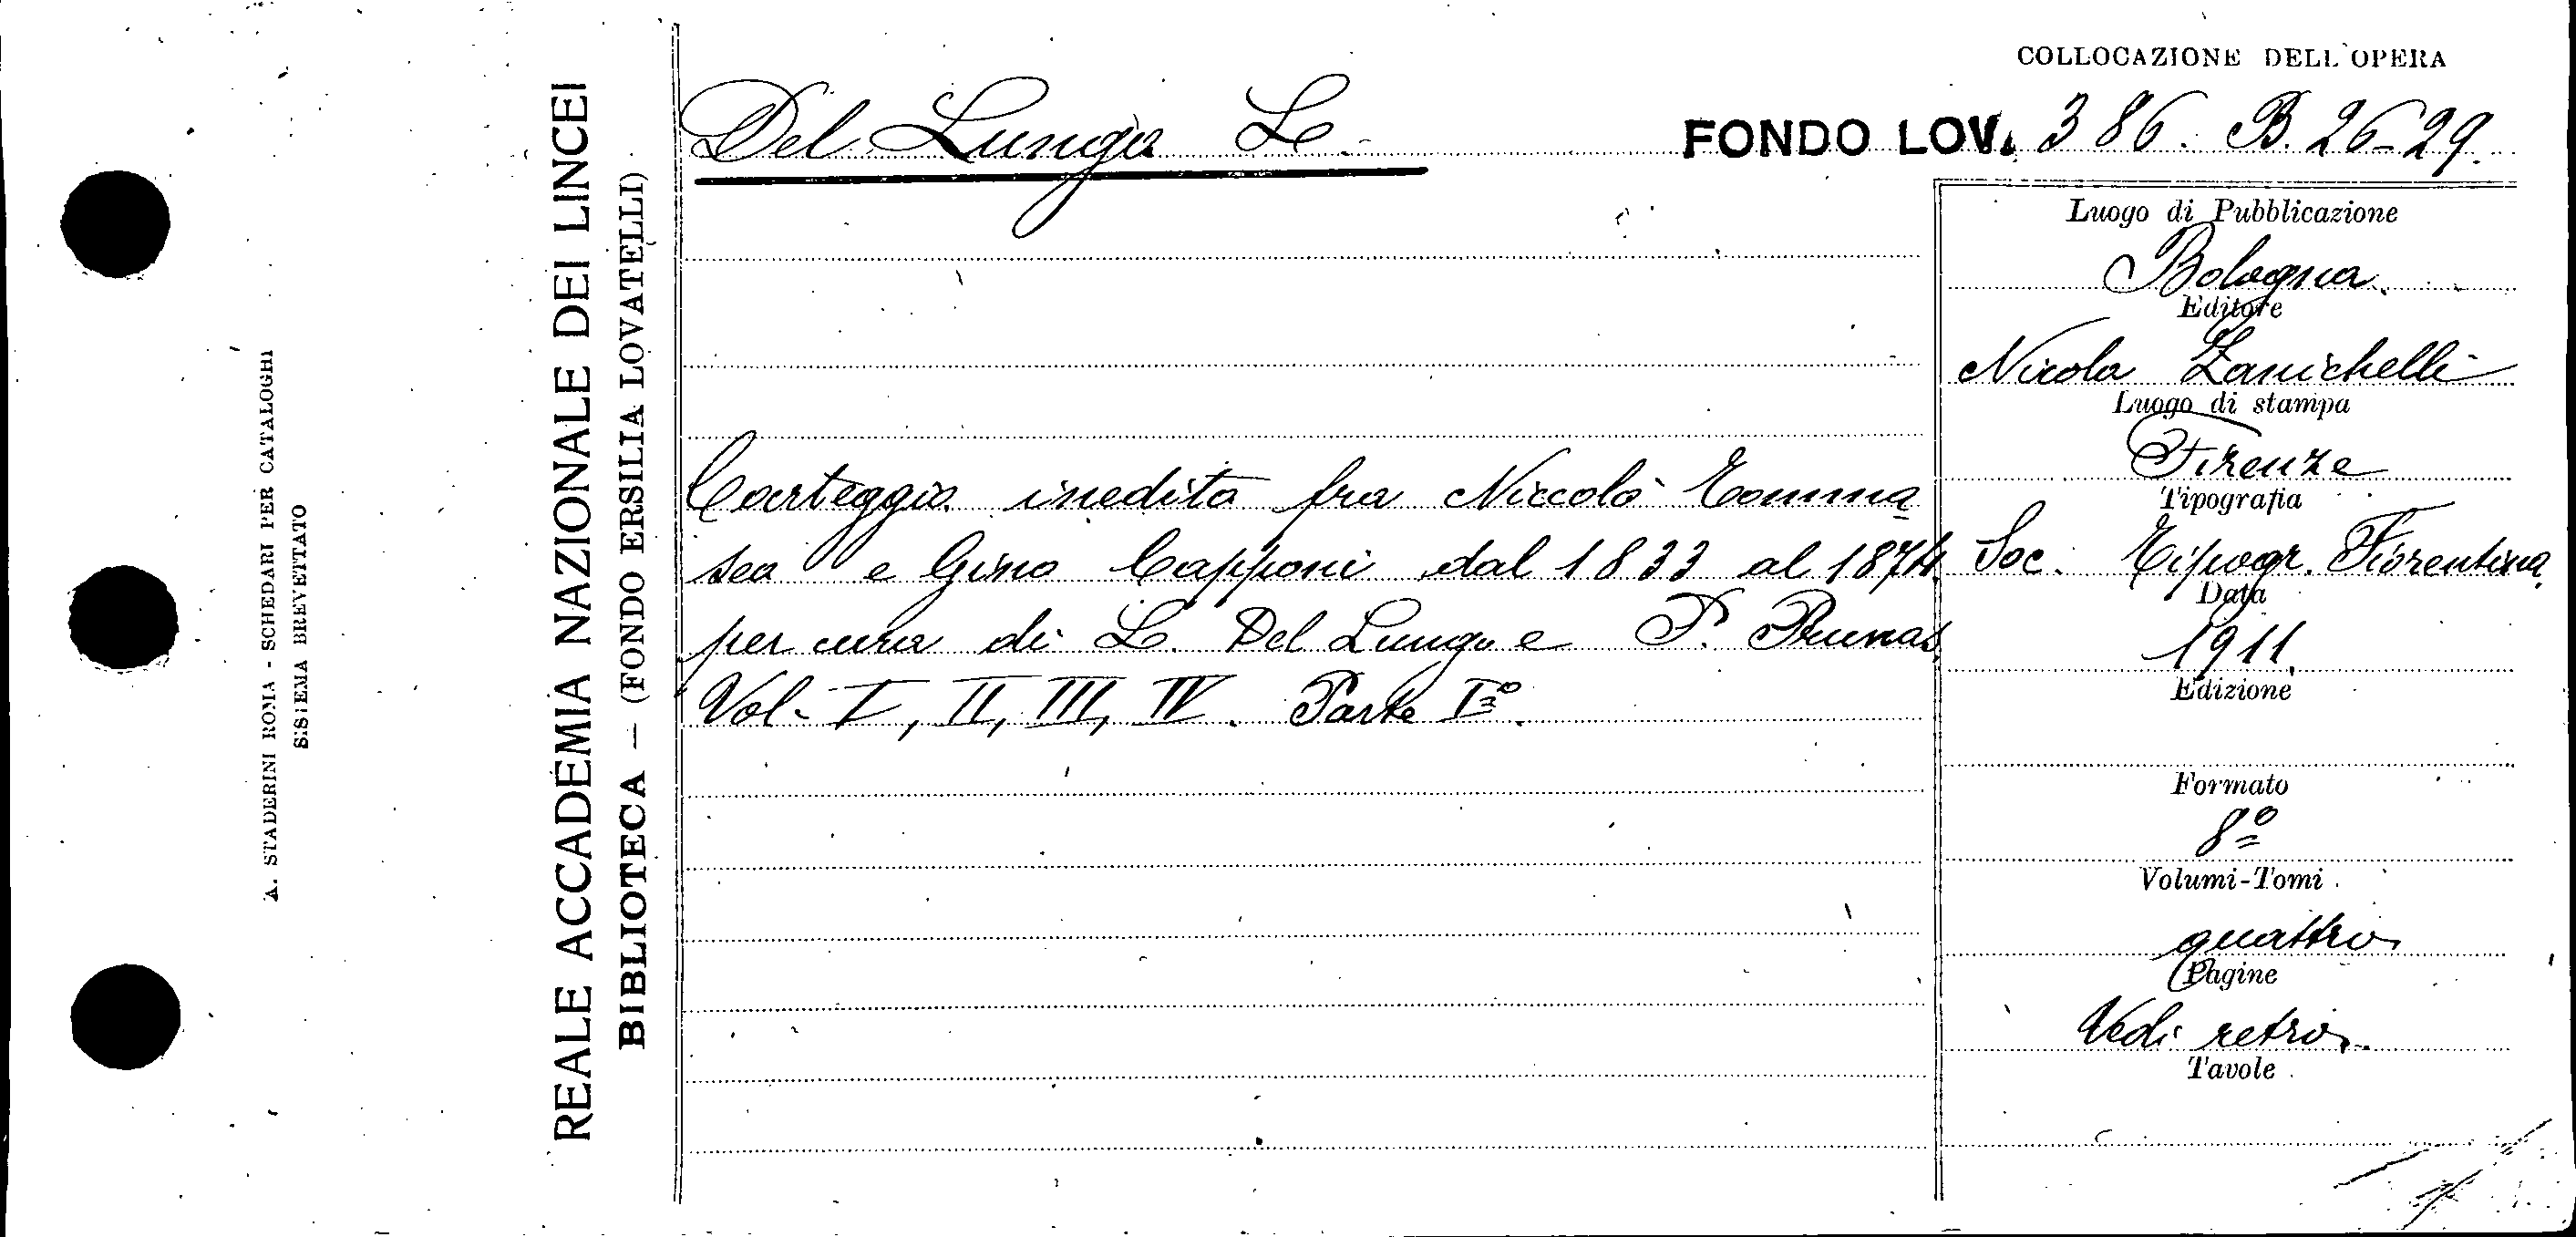 COLLOCAZIONE DELL'OPERA
Del Lungo Is.
FONDO LOV. 386. B. 26-29.
Luogo di Pubblicazione
Bologna.
Editore
Nicola Zanichelli
Luogo di stampa
Firenze
Tipografia
Soc. Tipogr. Fiorentina
Data
1911.
Edizione
Formato
8º
Volumi-Tomi
quattro
Pagine
Vedi retro.
Tavole
Carteggio inedito fra Niccolò Tomma
seo e Gino Capponi dal 1833 al 1874
per cura di Is. Del Lungo e P. Prunas
Vol. I, II, III, IV. Parte Iº.
REALE ACCADEMIA NAZIONALE DEI LINCEI
BIBLIOTECA — (FONDO ERSILIA LOVATELLI)
A. STADERINI ROMA - SCHEDARI PER CATALOGHI
SISTEMA BREVETTATO